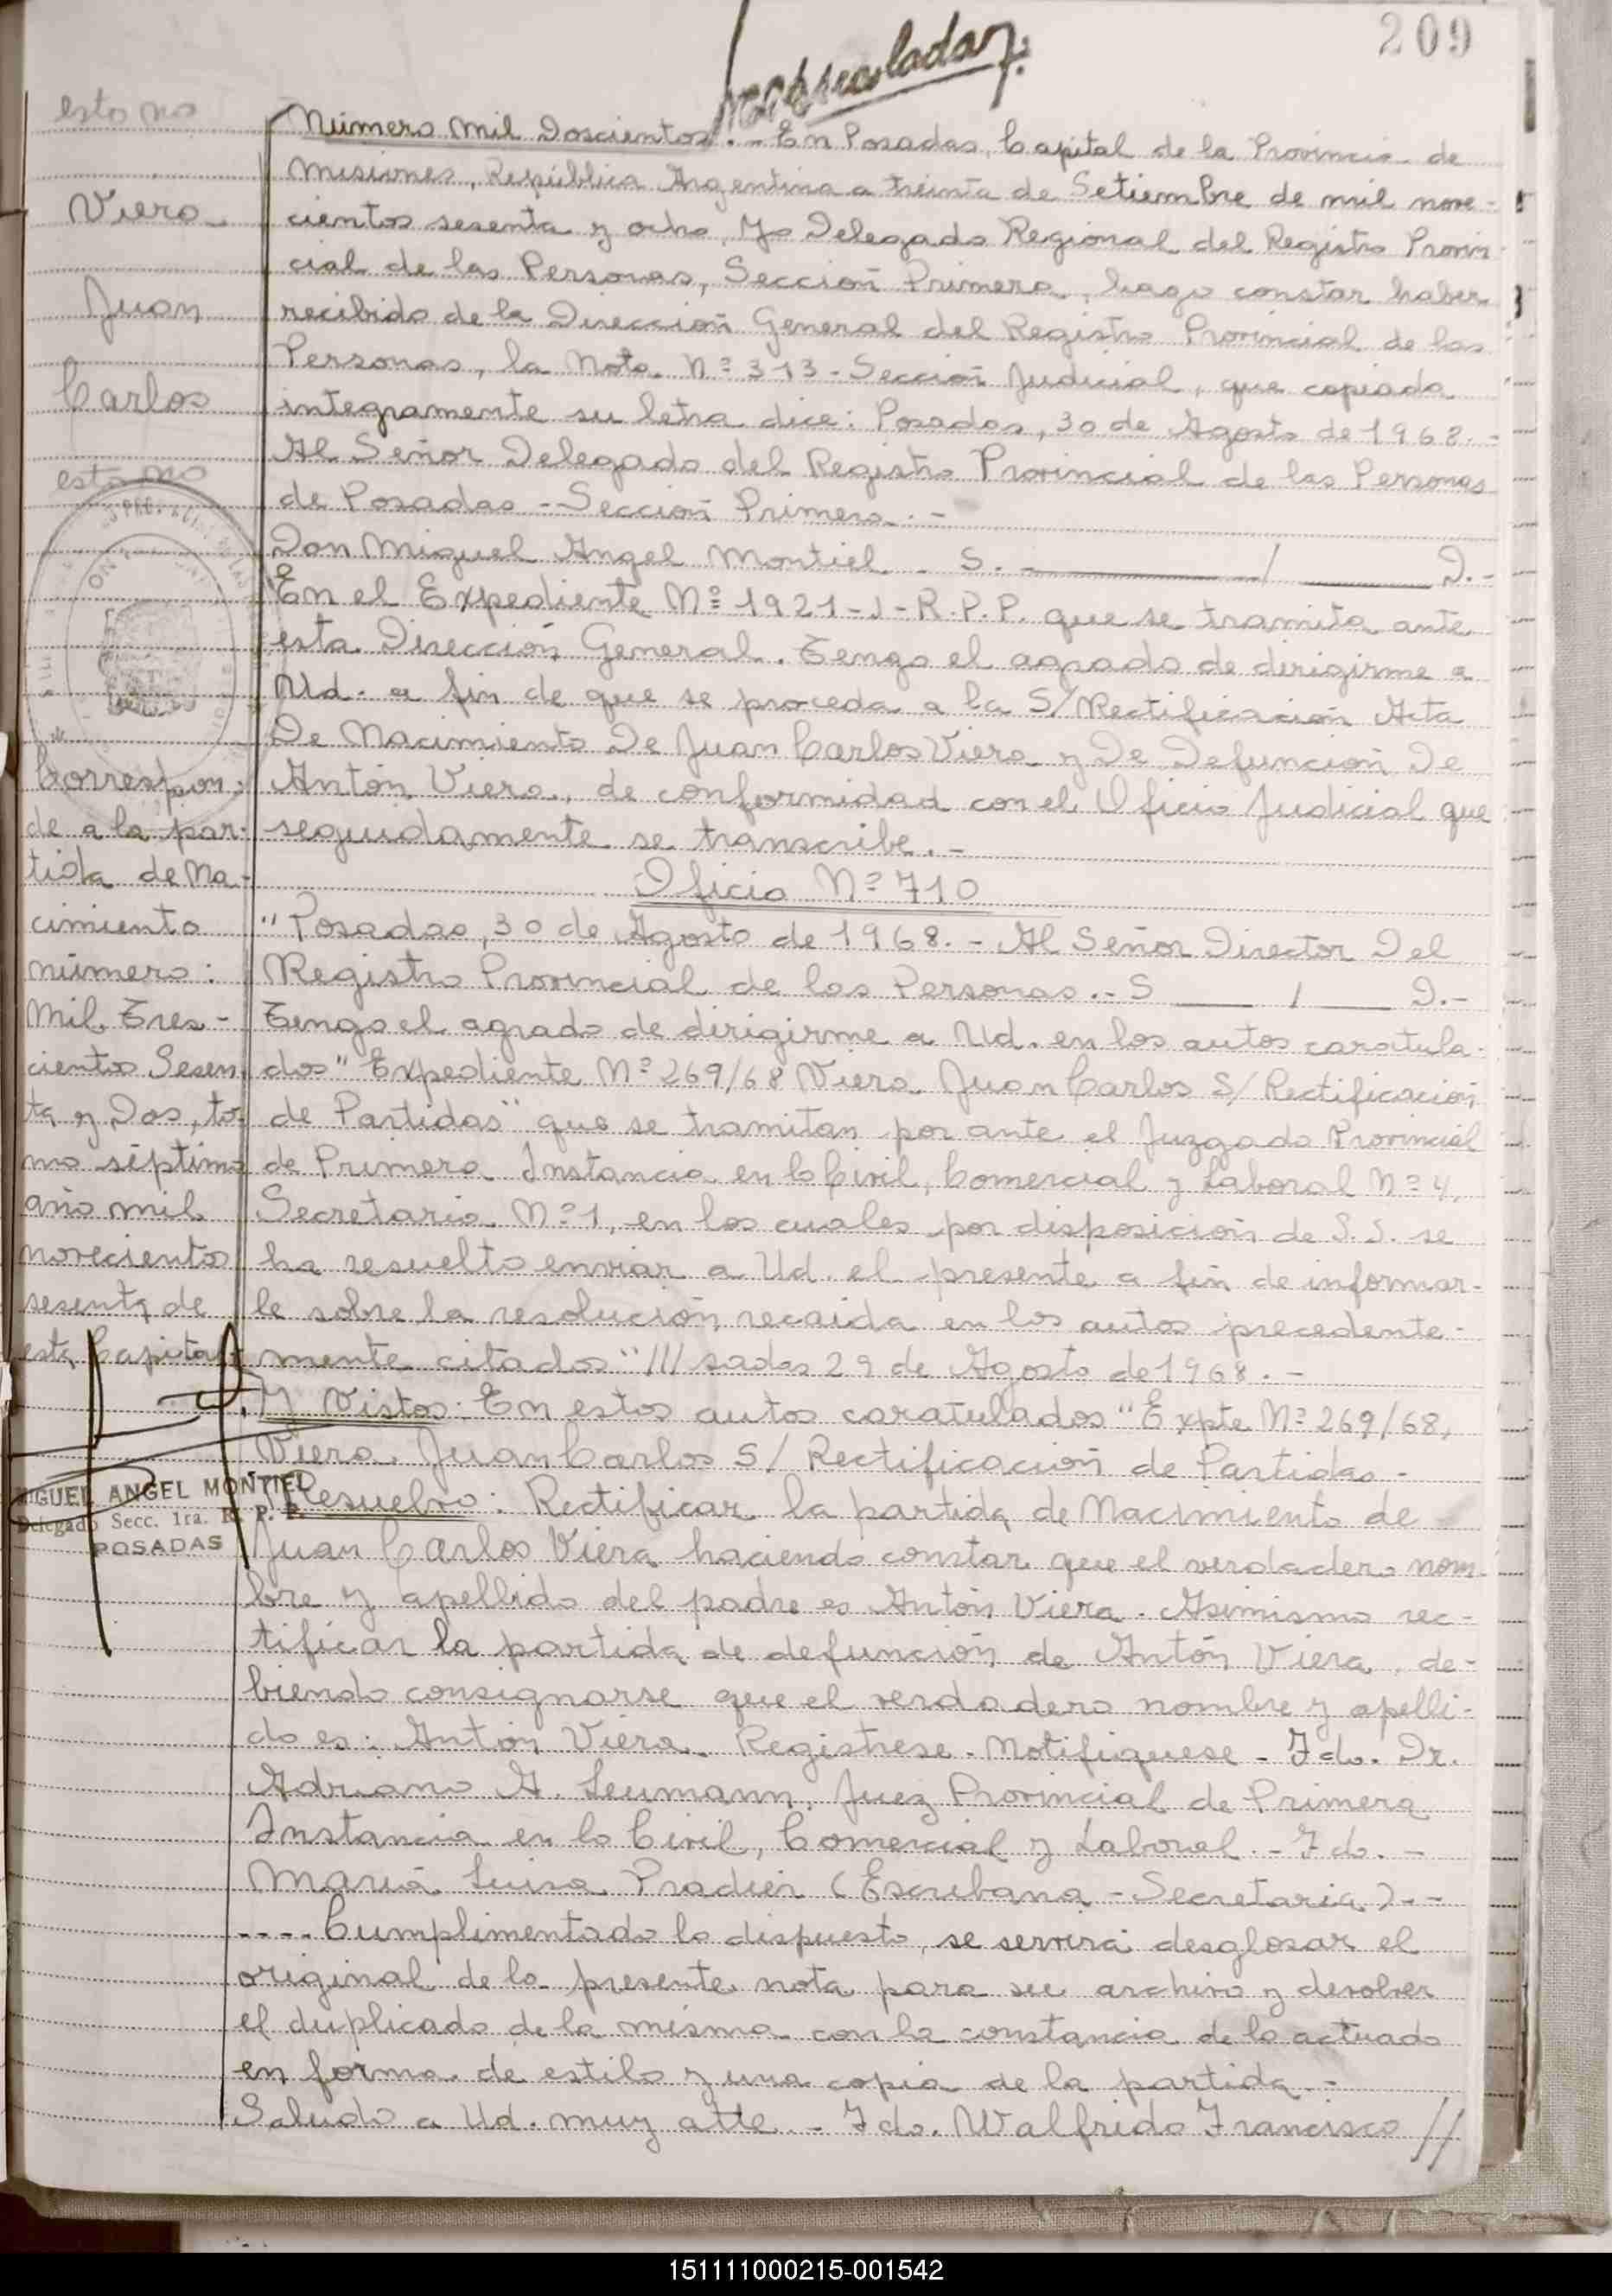 209
Número Mil Doscientos.- En Posadas, Capital de la Provincia de
Misiones, República Argentina a treinta de Setiembre de mil nove-
cientos sesenta y ocho, Yo Delegado Regional del Registro Provin-
cial de las Personas, Sección Primera, hago constar haber
recibido de la Dirección General del Registro Provincial de las
Personas, la Nota Nº 313 - Sección Judicial, que copiada
integramente su letra dice: Posadas, 30 de Agosto de 1968.-
Al Señor Delegado del Registro Provincial de las Personas
de Posadas - Sección Primera.-
Don Miguel Angel Montiel - S. / D.-
En el Expediente Nº 1921-J-R.P.P. que se tramita ante
esta Dirección General. Tengo el agrado de dirigirme a
Ud. a fin de que se proceda a la S/Rectificación Acta
De Nacimiento De Juan Carlos Viera y De Defunción De
Antón Viera, de conformidad con el Oficio Judicial que
seguidamente se transcribe.-
Oficio Nº 710
"Posadas, 30 de Agosto de 1968.- Al Señor Director Del
Registro Provincial de las Personas.- S / D.-
Tengo el agrado de dirigirme a Ud. en los autos caratula-
dos "Expediente Nº 269/68 Viera Juan Carlos S/Rectificación
de Partidas" que se tramitan por ante el Juzgado Provincial
de Primera Instancia en lo Civil, Comercial y Laboral Nº 4,
Secretaria Nº 1, en los cuales por disposición de S.S. se
ha resuelto enviar a Ud. el presente a fin de informar-
le sobre la resolución recaida en los autos precedente-
mente citados "///sadas 29 de Agosto de 1968.-
Y Vistos: En estos autos caratulados "Expte Nº 269/68,
Viera Juan Carlos S/ Rectificación de Partidas-
Resuelvo: Rectificar la partida de Nacimiento de
Juan Carlos Viera haciendo constar que el verdadero nom-
bre y apellido del padre es Antón Viera. Asimismo rec-
tificar la partida de defunción de Antón Viera, de-
biendo consignarse que el verdadero nombre y apelli-
do es: Antón Viera. Registrese. Notifiquese - Fdo. Dr.
Adriano A. Leumann, Juez Provincial de Primera
Instancia en lo Civil, Comercial y Laboral.- Fdo.-
Maria Luisa Pradier (Escribana - Secretaria).--
---- Cumplimentado lo dispuesto, se servirá desglosar el
original de la presente nota para su archivo y devolver
el duplicado de la misma con la constancia de lo actuado
en forma de estilo y una copia de la partida.-
Saludo a Ud. muy atte.- Fdo. Walfrido Francisco //
esto no
Viera
Juan
Carlos
esto no
Correspon-
de a la par-
tida de Na-
cimiento
número:
Mil Tres-
cientos Sesen
ta y Dos, to-
mo séptimo
año mil
novecientos
sesenta de
esta Capital
MIGUEL ANGEL MONTIEL
Delegado Secc. 1ra. R. P. P.
POSADAS
151111000215-001542